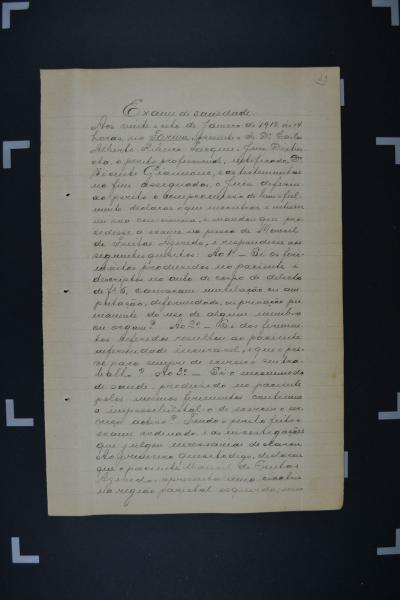 Exame de sanidade
Aos vinte e oito de Janeiro de 1912, ás 14
horas, no Forum, presente o Dr. Carlos
Alberto Ribeiro Juiz Distri
cta, o perito profissional, notificado, Dr.
Vicente e as testemunhas
no fim assignadas, o Juiz deferiu
ao perito o compromisso de bem e fiel
mente declarar o que encontrar e
em sua consciencia, e mandou que pro
cedesse a exame na pessoa de Manoel
de Freitas Azevedo, e respondesse aos
seguintes quesitos: Ao 1º — Si os feri
mentos produzidos no paciente e
descriptos no auto de corpo de delicto
de fls 6, causaram mutilação ou am
putação, deformidade, ou privação per
manente do uso de algum membro
ou orgam? Ao 2º — Si dos ferimen
tos referidos resultou ao paciente
enfermidade incuravel, e que o pri
ve para sempre de exercer o seu tra
balho? Ao 3º — Si o incommodo
de saude, produzido no paciente
pelos mesmos ferimentos continua
a impossibilital-o de exercer o ser
viço activo? Sendo o perito feito o
exame ordenado e as investigações
que julgou necessarias declarou:
Ao primeiro quesito digo, declarou
que o paciente Manoel de Freitas
Azevedo, apresenta uma cicatriz
na região parietal esquerda,